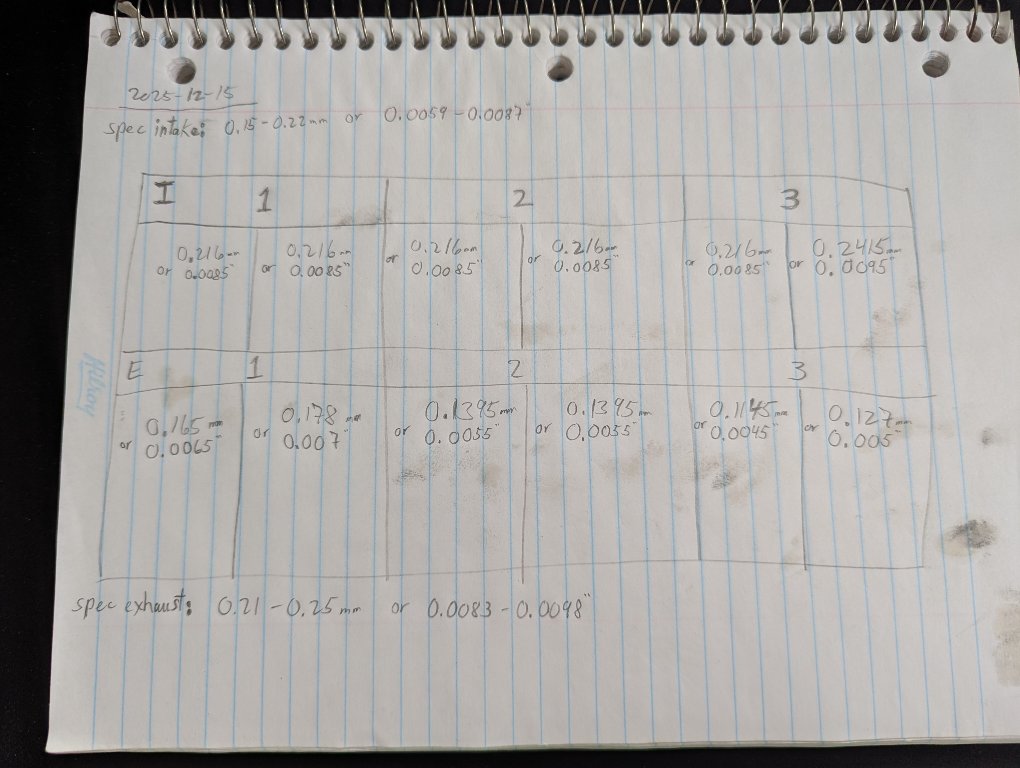 2025-12-15
spec intake: 0.15-0.22mm or 0.0059-0.0087"
I 1 2 3
0.216mm 0.216mm 0.216mm 0.216mm 0.216mm 0.2415mm
or 0.0085" or 0.0085" or 0.0085" or 0.0085" or 0.0085" or 0.0095"
E 1 2 3
0.165mm 0.178mm 0.1395mm 0.1395mm 0.1145mm 0.127mm
or 0.0065" or 0.007" or 0.0055" or 0.0055" or 0.0045" or 0.005"
spec exhaust: 0.21-0.25mm or 0.0083-0.0098"
Hilroy